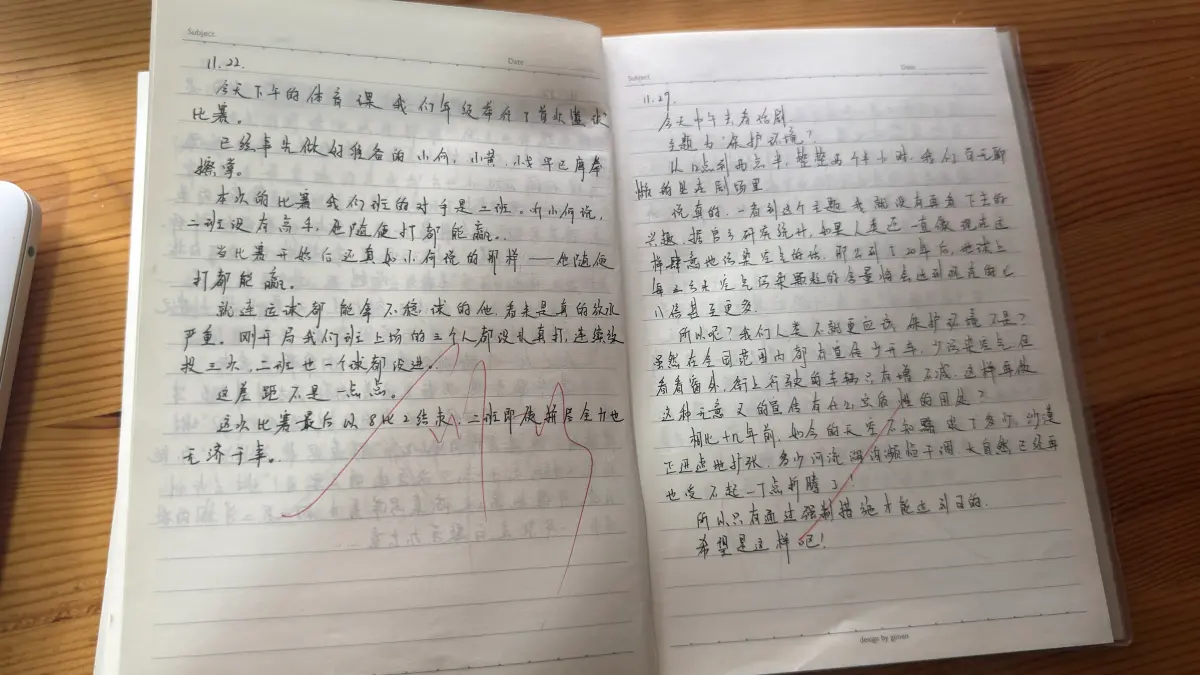 Subject
Date
11.22.
今天下午的体育课 我们年级举行了首次
比赛。
已经事先做好准备的小何，小黄，早已摩拳
擦掌。
本次的比赛我们班的对手是二班。听小何说，
二班没有高手，他随便打都能赢。
当比赛开始后还真如小何说的那样——他随便
打都能赢。
就连运球都能拿不稳球的他，看来是真的放水
严重。刚开局我们班上场的三个人都没认真打，连续
投三次，二班也一个球都没进。
这差距不是一点点。
这次比赛最后以8比2结束，二班即使拼尽全力也
无济于事。
Subject
Date
11.29.
今天中午去看话剧
主题为“保护环境”
从12点到两点半，整整两个半小时，我们百无聊
赖的坐在剧场里
说真的，一看到这个主题我就没有再看下去的
兴趣，据官方研究统计，如果人类还一直像现在这
样肆意地污染空气的话，那么到了20年后，地球上
每立方米空气污染颗粒的含量将会达到现在的七
八倍甚至更多.
所以呢？我们人类不就更应该保护环境不是？
虽然在全国范围内都有宣传少开车，少污染空气，但
看看窗外，街上行驶的车辆只有增不减，这样再做
这种无意义的宣传有什么实质性的用处？
相比十几年前，如今的天空不知 了多少，沙漠
正迅速地扩张，多少河流湖泊濒临干涸，大自然已经再
也受不起一丁点折腾了！
所以只有通过强制措施才能达到目的.
希望是这样吧！
design by